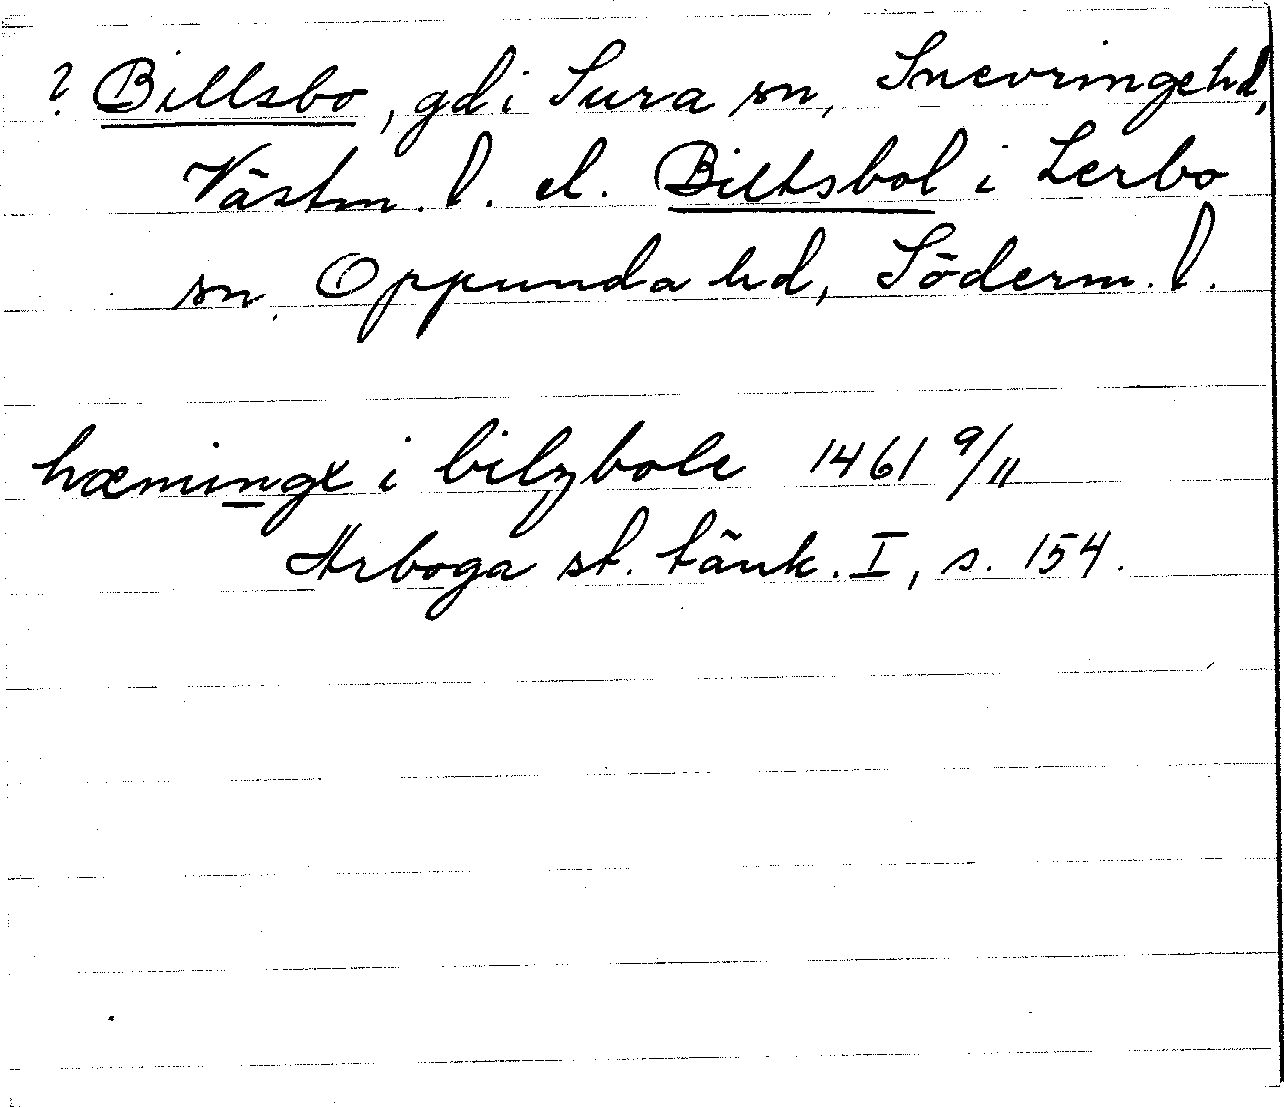 ? Billsbo, gd i Sura sn, Snevringe hd,
Västm. l. el. Biltsbol i Lerbo
sn, Oppunda hd, Söderm. l.
hæmingx i bilzbole 1461 9/11
Arboga st. tänk. I, s. 154.